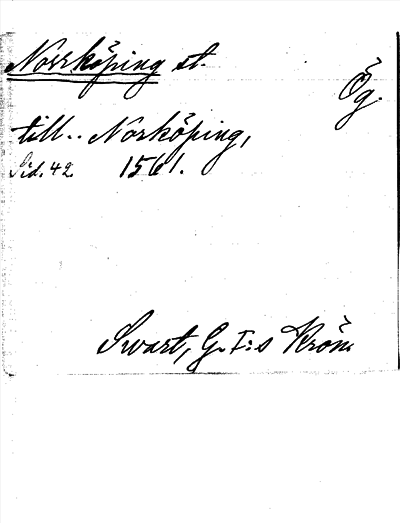 Norrköping st.
Ög.
till.. Norköping,
Sid. 42 1561.
Swart, G. I:s Krön.